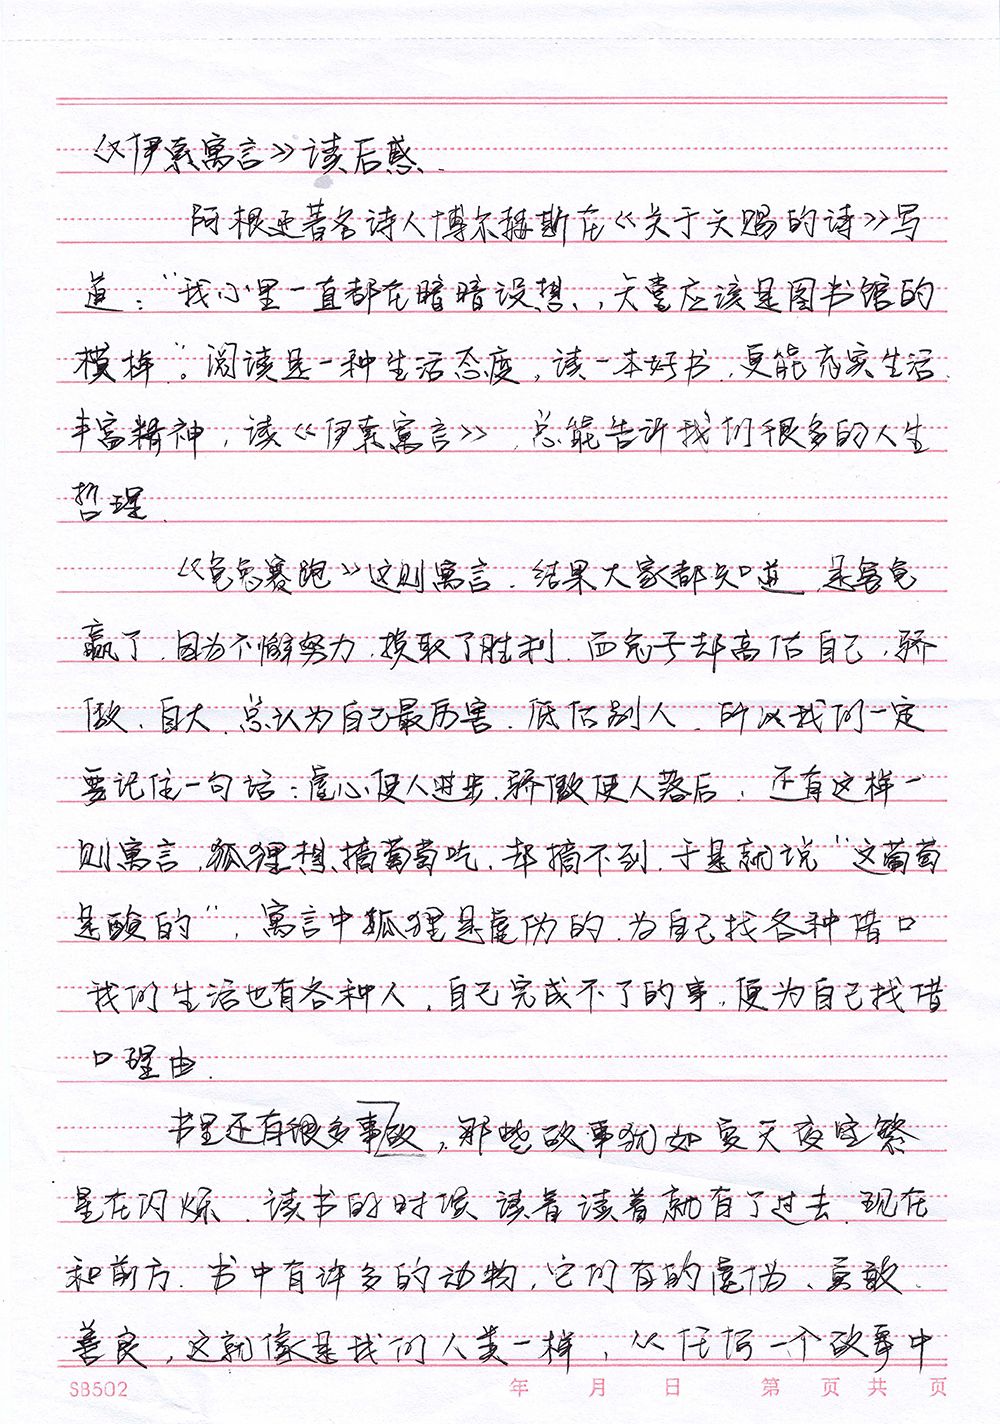 《伊索寓言》读后感.
阿根廷著名诗人博尔赫斯在《关于天赐的诗》写
道：“我心里一直都在暗暗设想，天堂应该是图书馆的
模样”。阅读是一种生活态度，读一本好书，更能充实生活.
丰富精神，读《伊索寓言》，总能告诉我们很多的人生
哲理.
《龟兔赛跑》这则寓言.结果大家都知道，是乌龟
赢了.因为不懈努力，换取了胜利.而兔子却高估自己，骄
傲、自大.总认为自己最厉害.低估别人.所以我们一定
要记住一句话：虚心使人进步.骄傲使人落后，还有这样一
则寓言，狐狸想摘葡萄吃、却摘不到.于是就说“这葡萄
是酸的”，寓言中狐狸是虚伪的.为自己找各种借口
我们生活也有各种人，自己完成不了的事，便为自己找借
口理由.
书里还有很多事故，那些故事犹如夏天夜空繁
星在闪烁.读书的时候读着读着就有了过去.现在
和前方.书中有许多的动物，它们有的虚伪、勇敢、
善良，这就像是我们人类一样，从任何一个故事中
SB502 年 月 日 第 页 共 页